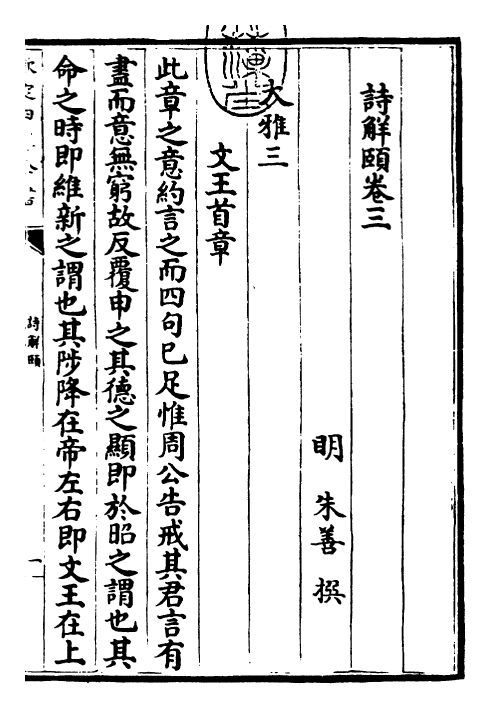 詩解頤卷三
明 朱善 撰
大雅三
文王首章
此章之意約言之而四句已足惟周公告戒其君言有
盡而意無窮故反覆申之其德之顯即於昭之謂也其
命之時即維新之謂也其陟降在帝左右即文王在上
詩解頤